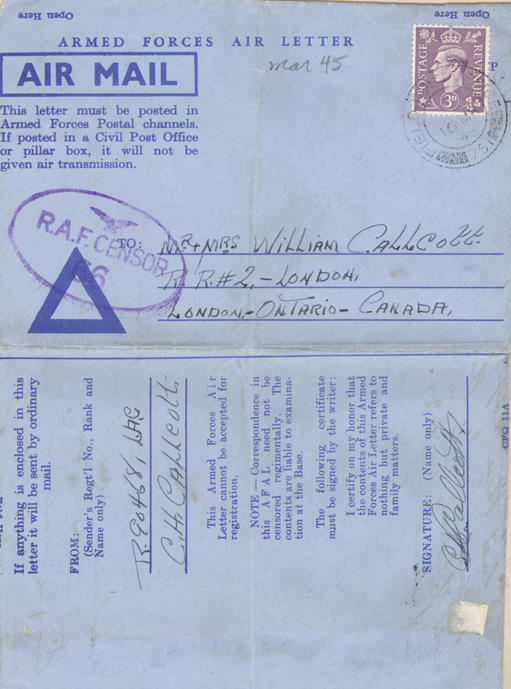 Open Here
Open Here
ARMED FORCES AIR LETTER
mar '45
AIR MAIL
POSTAGE
REVENUE
3D
P
This letter must be posted in
Armed Forces Postal channels.
If posted in a Civil Post Office
or pillar box, it will not be
given air transmission.
FIELD
R.A.F. CENSOR
56
TO: MR + MRS WILLIAM CALLCOTT.
R.R.#2,-LONDON,
LONDON,-ONTARIO-CANADA,
If anything is enclosed in this
letter it will be sent by ordinary
mail.
FROM:
(Sender's Regt'l No., Rank and
Name only)
R.90468/LAC
C.H. CALLCOTT.
This Armed Forces Air
Letter cannot be accepted for
registration.
NOTE — Correspondence in
this A F A L need not be
censored regimentally. The
contents are liable to examina-
tion at the Base.
The following certificate
must be signed by the writer:
I certify on my honor that
the contents of this Armed
Forces Air Letter refers to
nothing but private and
family matters.
SIGNATURE: (Name only)
CH Callcott
CFQ 11A